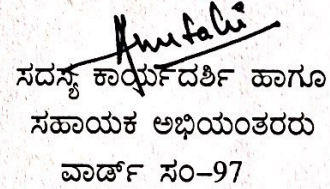 ಸದಸ್ಯ ಕಾರ್ಯದರ್ಶಿ ಹಾಗೂ
ಸಹಾಯಕ ಅಭಿಯಂತರರು
ವಾರ್ಡ್ ಸಂ-97